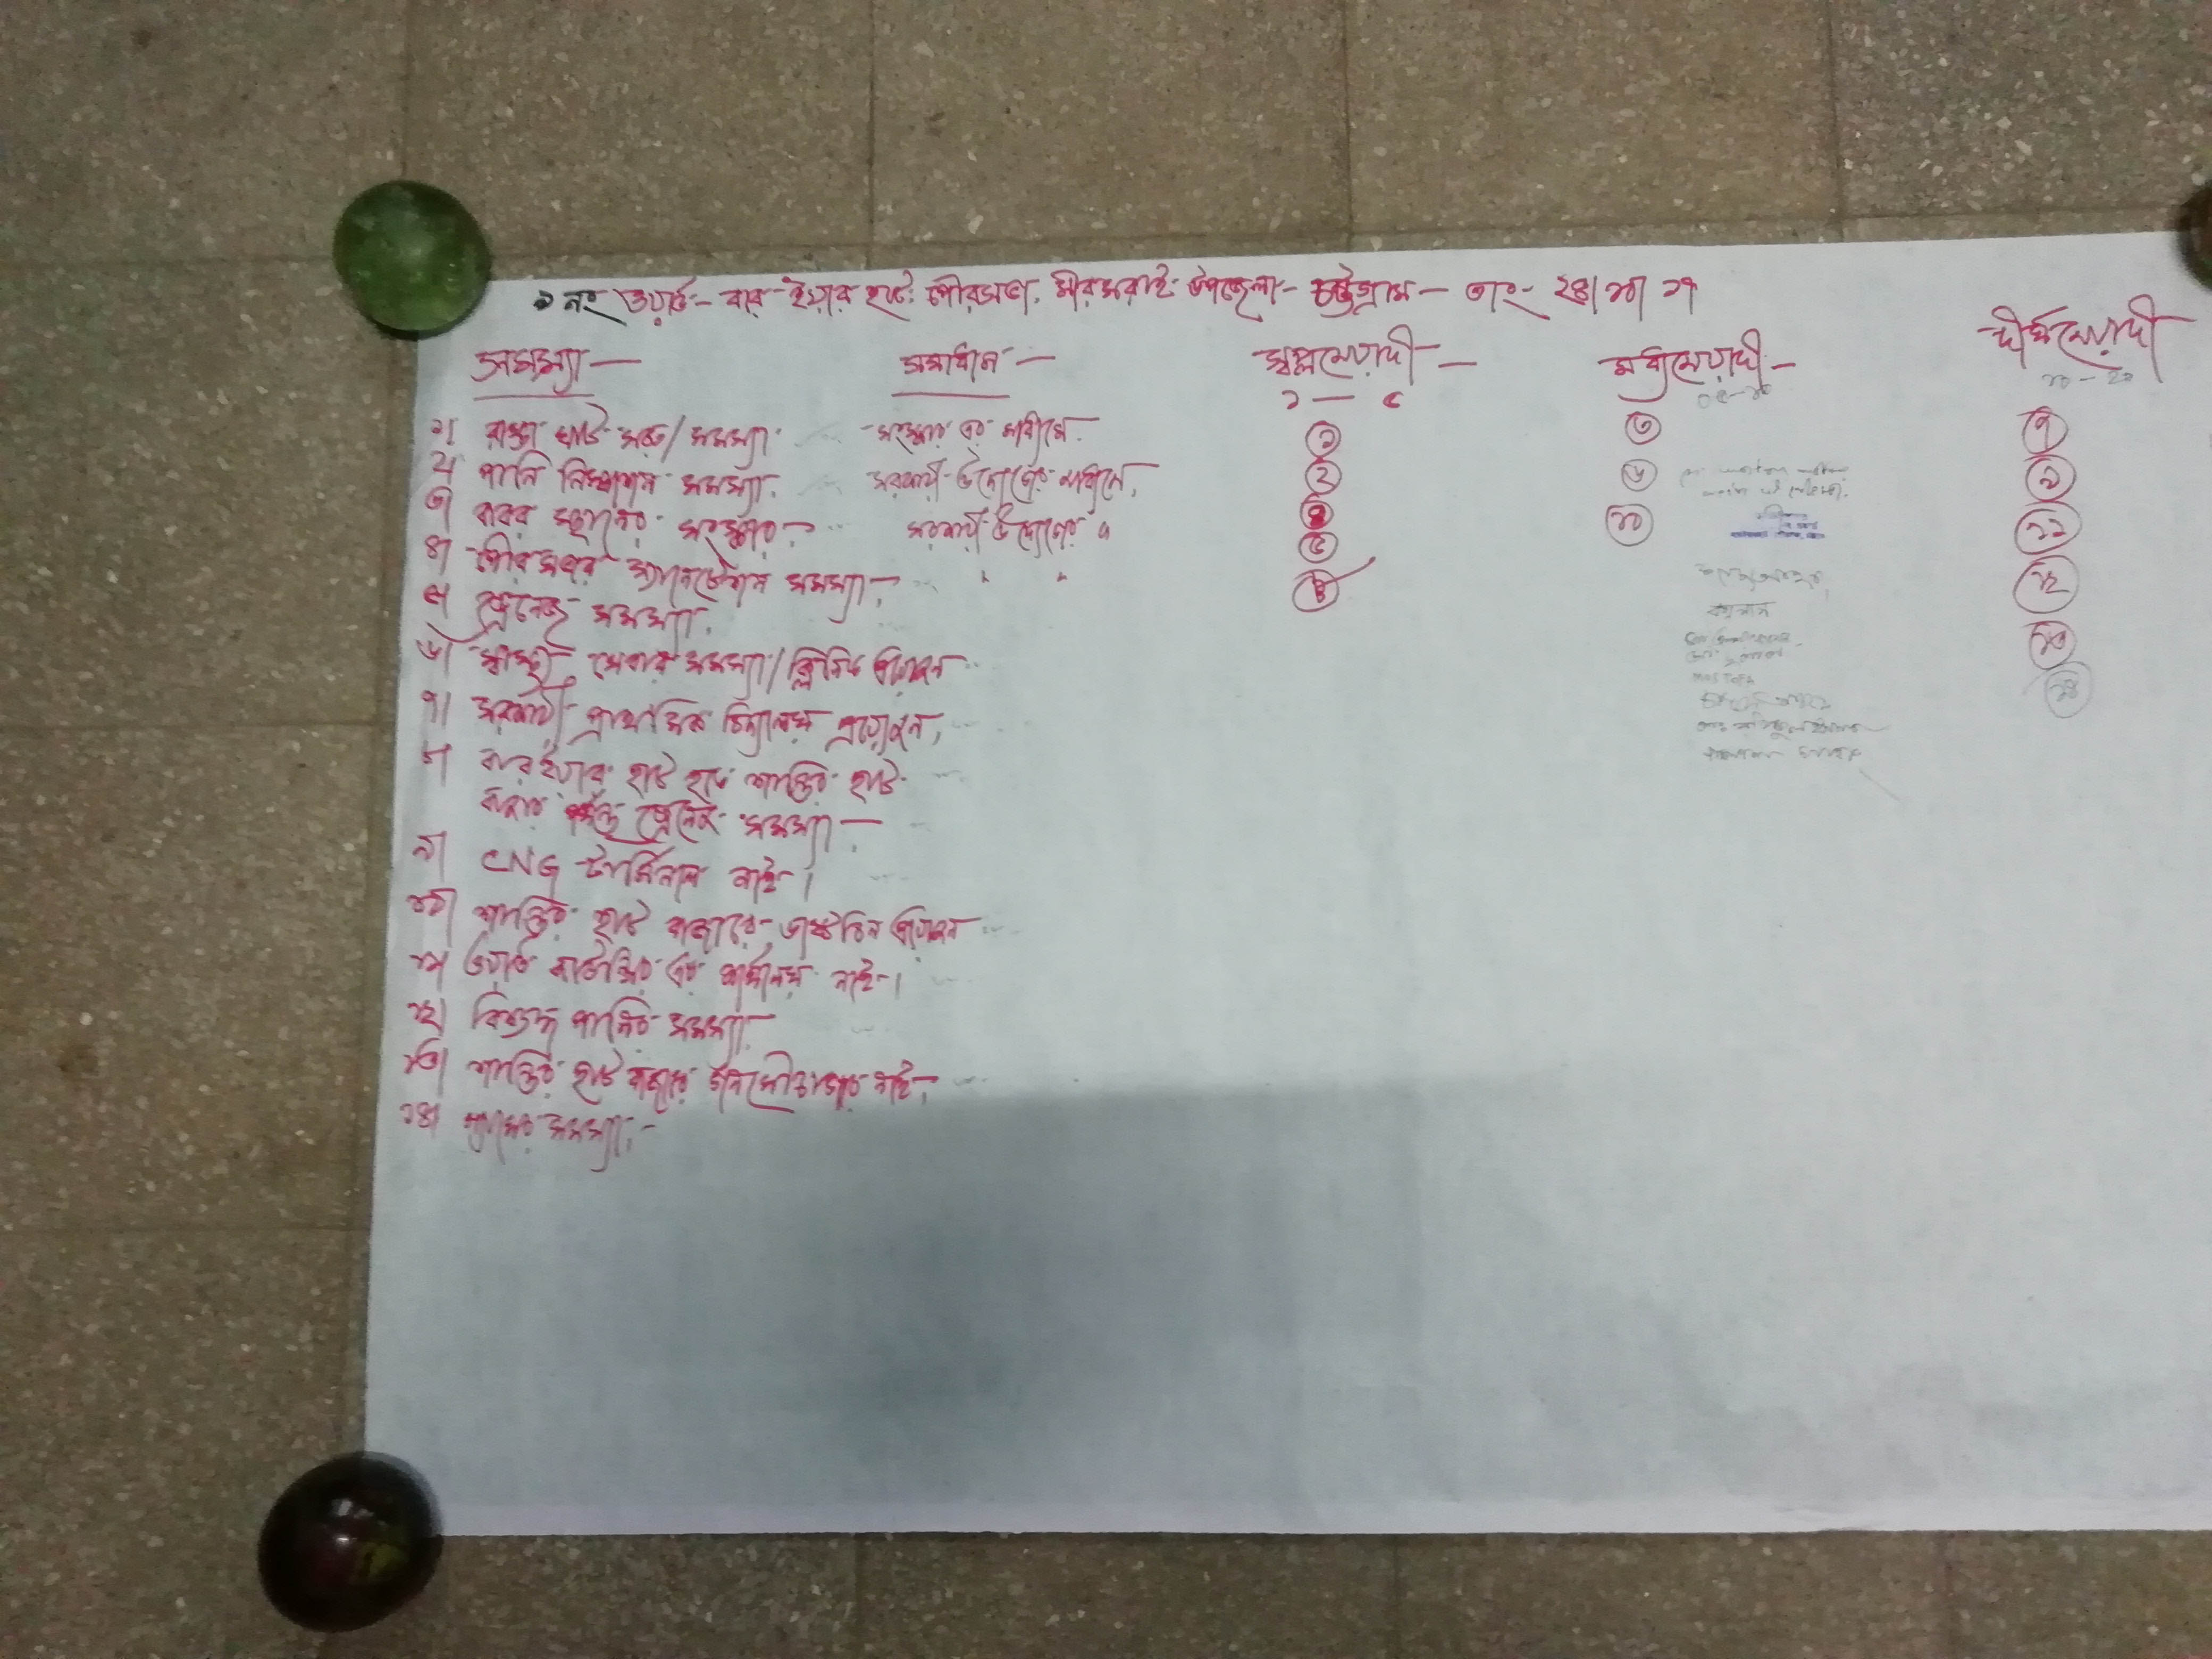 ৯ নং ওয়ার্ড - বার ইয়ার হাট পৌরসভা, মীরসরাই উপজেলা - চট্টগ্রাম - তাং - ২৪/১০/১৭
সমস্যা — সমাধান — স্বল্পমেয়াদী — মধ্যমেয়াদী — দীর্ঘমেয়াদী
১ — ৫ ০৫-১০ ১০-২০
১। রাস্তা ঘাট সরু/সমস্যা সংস্কার এর মাধ্যমে ১ ৩ ৭
২। পানি নিষ্কাশন সমস্যা সরকারী উদ্যোগের মাধ্যমে ২ ৬ ৯
৩। কবর স্থানের সংস্কার সরকারী উদ্যোগের ১০ ১১
৪। পৌরসভার স্যানেটেশন সমস্যা " " ৫ ১২
৫। ড্রেনেজ সমস্যা ৮ ১৩
৬। স্বাস্থ্য সেবার সমস্যা/ক্লিনিক প্রয়োজন ১৪
৭। সরকারী প্রাথমিক বিদ্যালয় প্রয়োজন
৮। বারইয়ার হাট হতে শান্তির হাট
বাজার পর্যন্ত ড্রেনেজ সমস্যা —
৯। CNG টার্মিনাল নাই।
১০। শান্তির হাট বাজারে ডাষ্টবিন প্রয়োজন
১১। ওয়ার্ড কাউন্সিলর এর কার্যালয় নাই।
১২। বিশুদ্ধ পানির সমস্যা
১৩। শান্তির হাট বাজারে গনশৌচাগার নাই,
১৪। গ্যাসের সমস্যা, -